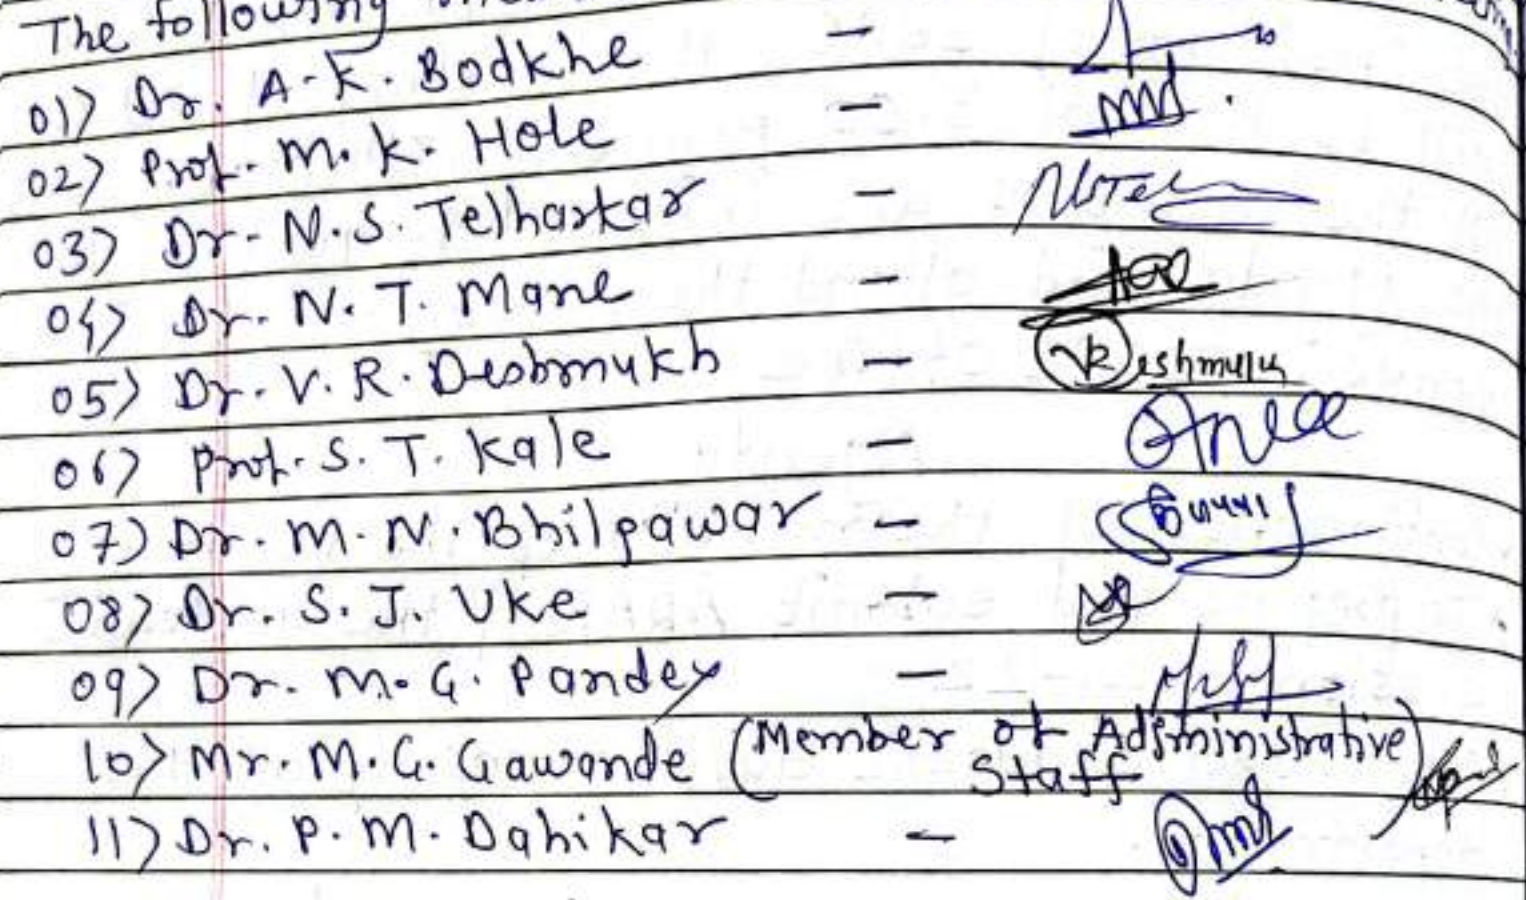 The following
01) Dr. A. K. Bodkhe —
02) Prof. M. K. Hole —
03) Dr. N. S. Telharkar —
04) Dr. N. T. Mane —
05) Dr. V. R. Deshmukh — VR eshmukh
06) Prof. S. T. Kale —
07) Dr. M. N. Bhilpawar —
08) Dr. S. J. Uke —
09) Dr. M. G. Pandey —
10) Mr. M. G. Gawande (Member of Adsministrative
Staff)
11) Dr. P. M. Dahikar —